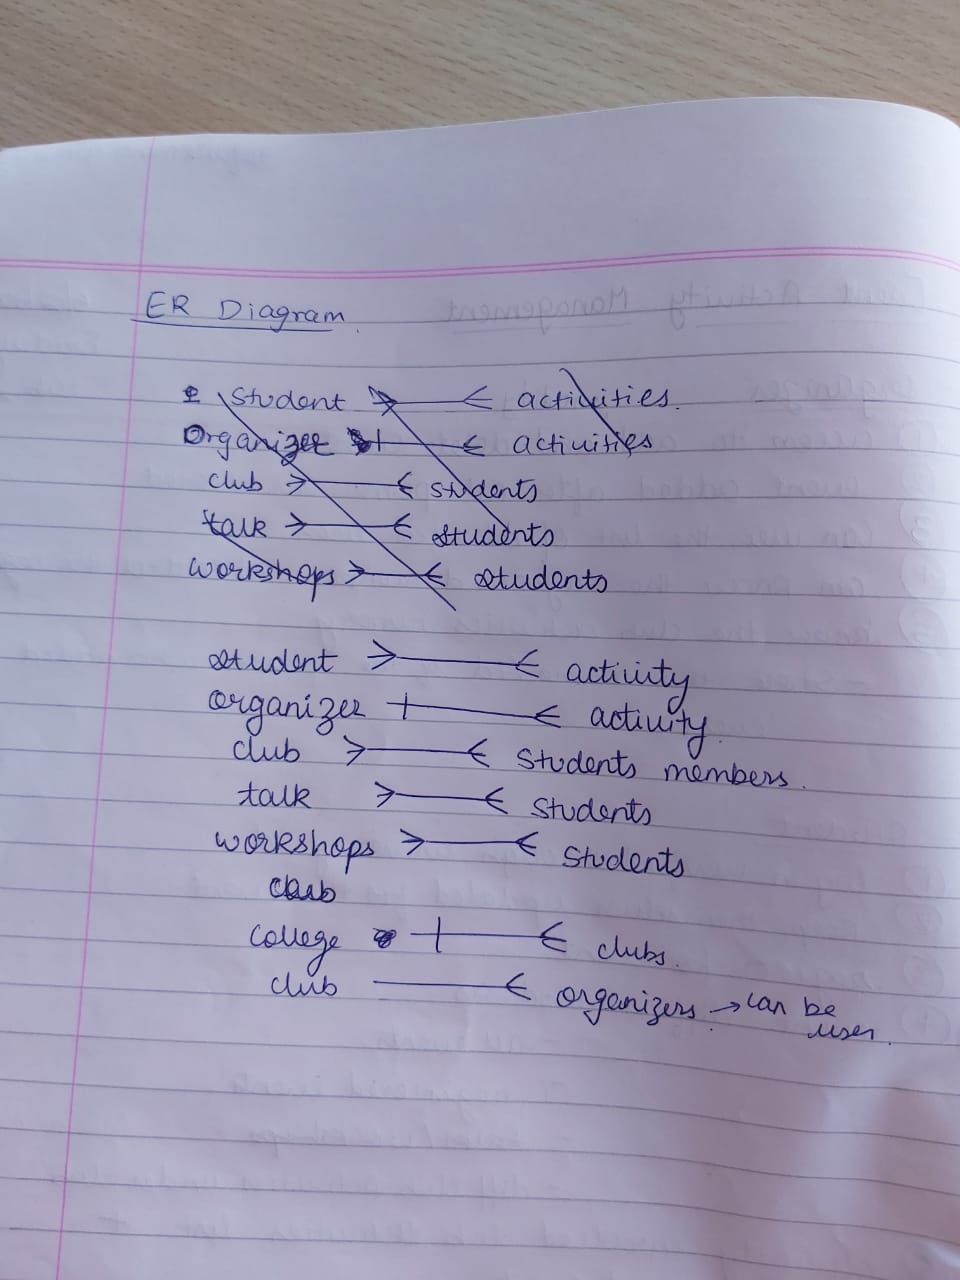 ER Diagram.
Student activities.
Organizer activities
club students
talk students
workshops students
student activity
organizer activity.
club Students members.
talk Students
workshops Students
club
college clubs.
club organizers → can be
user.